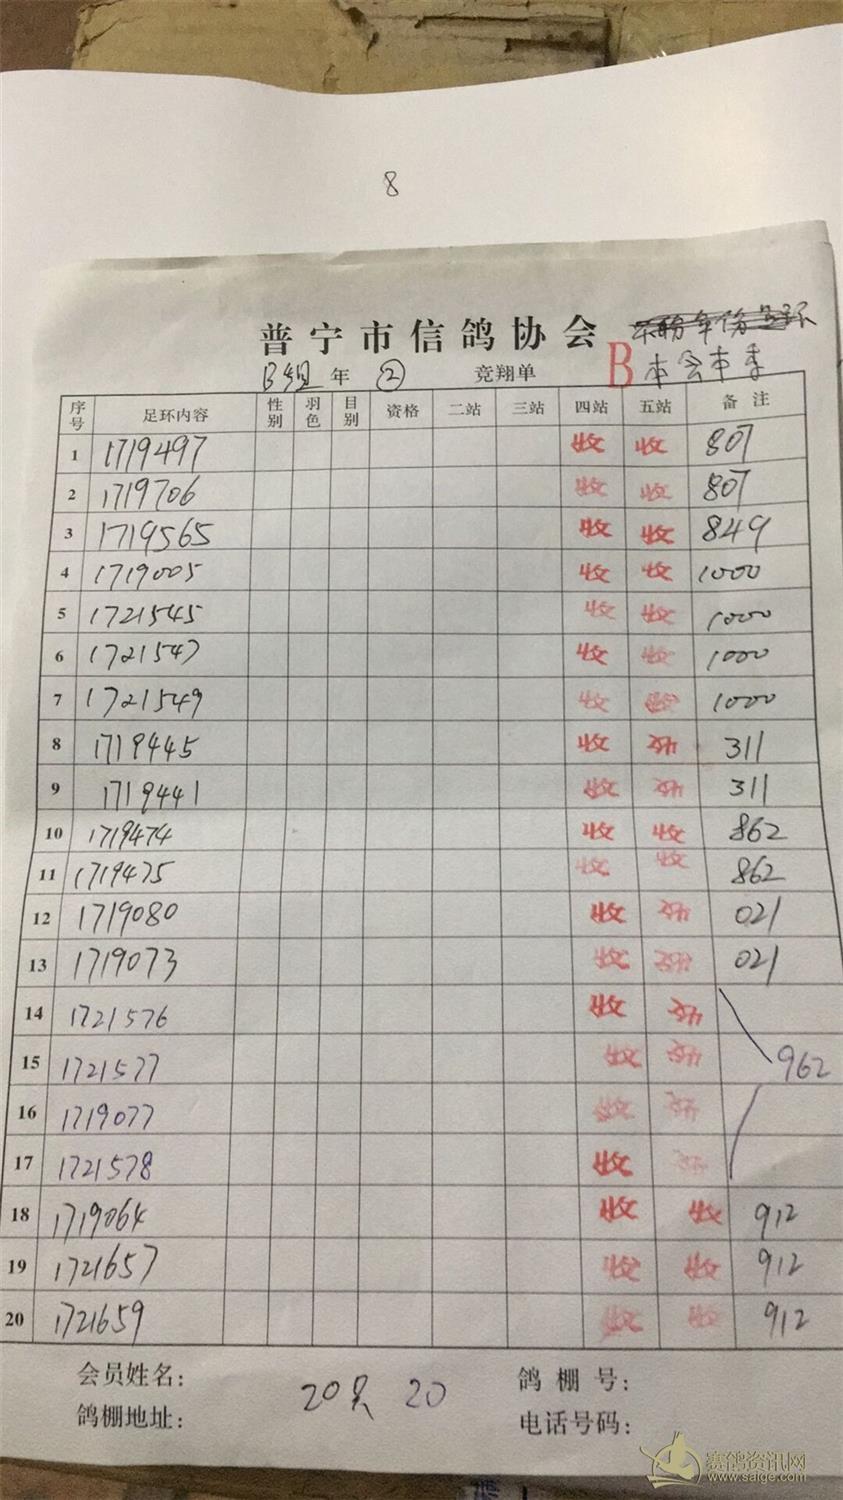 8
普宁市信鸽协会
B组 年 ② 竞翔单 B 本会本季
序号 足环内容 性别 羽色 目别 资格 二站 三站 四站 五站 备注
1 1719497 收 收 807
2 1719706 收 收 807
3 1719565 收 收 849
4 1719005 收 收 1000
5 1721545 收 收 1000
6 1721547 收 收 1000
7 1721549 收 收 1000
8 1719445 收 311
9 1719441 收 311
10 1719474 收 收 862
11 1719475 收 收 862
12 1719080 收 021
13 1719073 收 021
14 1721576 收
15 1721577 收 962
16 1719077 收
17 1721578 收
18 1719064 收 收 912
19 1721657 收 收 912
20 1721659 收 收 912
会员姓名: 鸽棚号:
20只 20
鸽棚地址: 电话号码:
赛鸽资讯网
www.saige.com